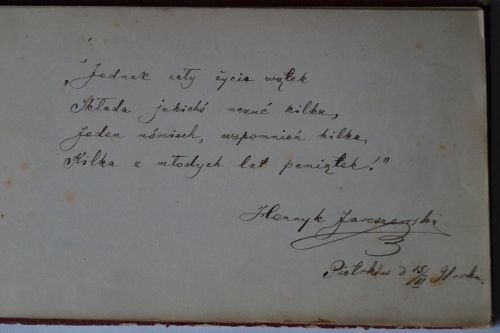 „Jednak cały życia wątek
Składa jakichś uczuć kilka,
Jeden uśmiech, wspomnień kilka,
Kilka z młodych lat pamiątek!"
Henryk Jaroszewski
Piotrków d 15/II 91 roku.